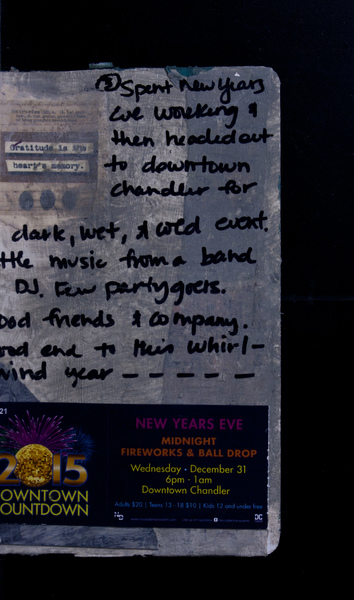 ② Spent New Years
Eve working &
then headed out
to downtown
Chandler for
dark, wet, & cold event.
ttle music from a band
DJ. Few partygoers.
ood friends & company.
ood end to this whirl-
wind year – – – – –
Gratitude is the
heart's memory.
21
2015
OWNTOWN
OUNTDOWN
NEW YEARS EVE
MIDNIGHT
FIREWORKS & BALL DROP
Wednesday - December 31
6pm - 1am
Downtown Chandler
Adults $20 | Teens 13 - 18 $10 | Kids 12 and under free